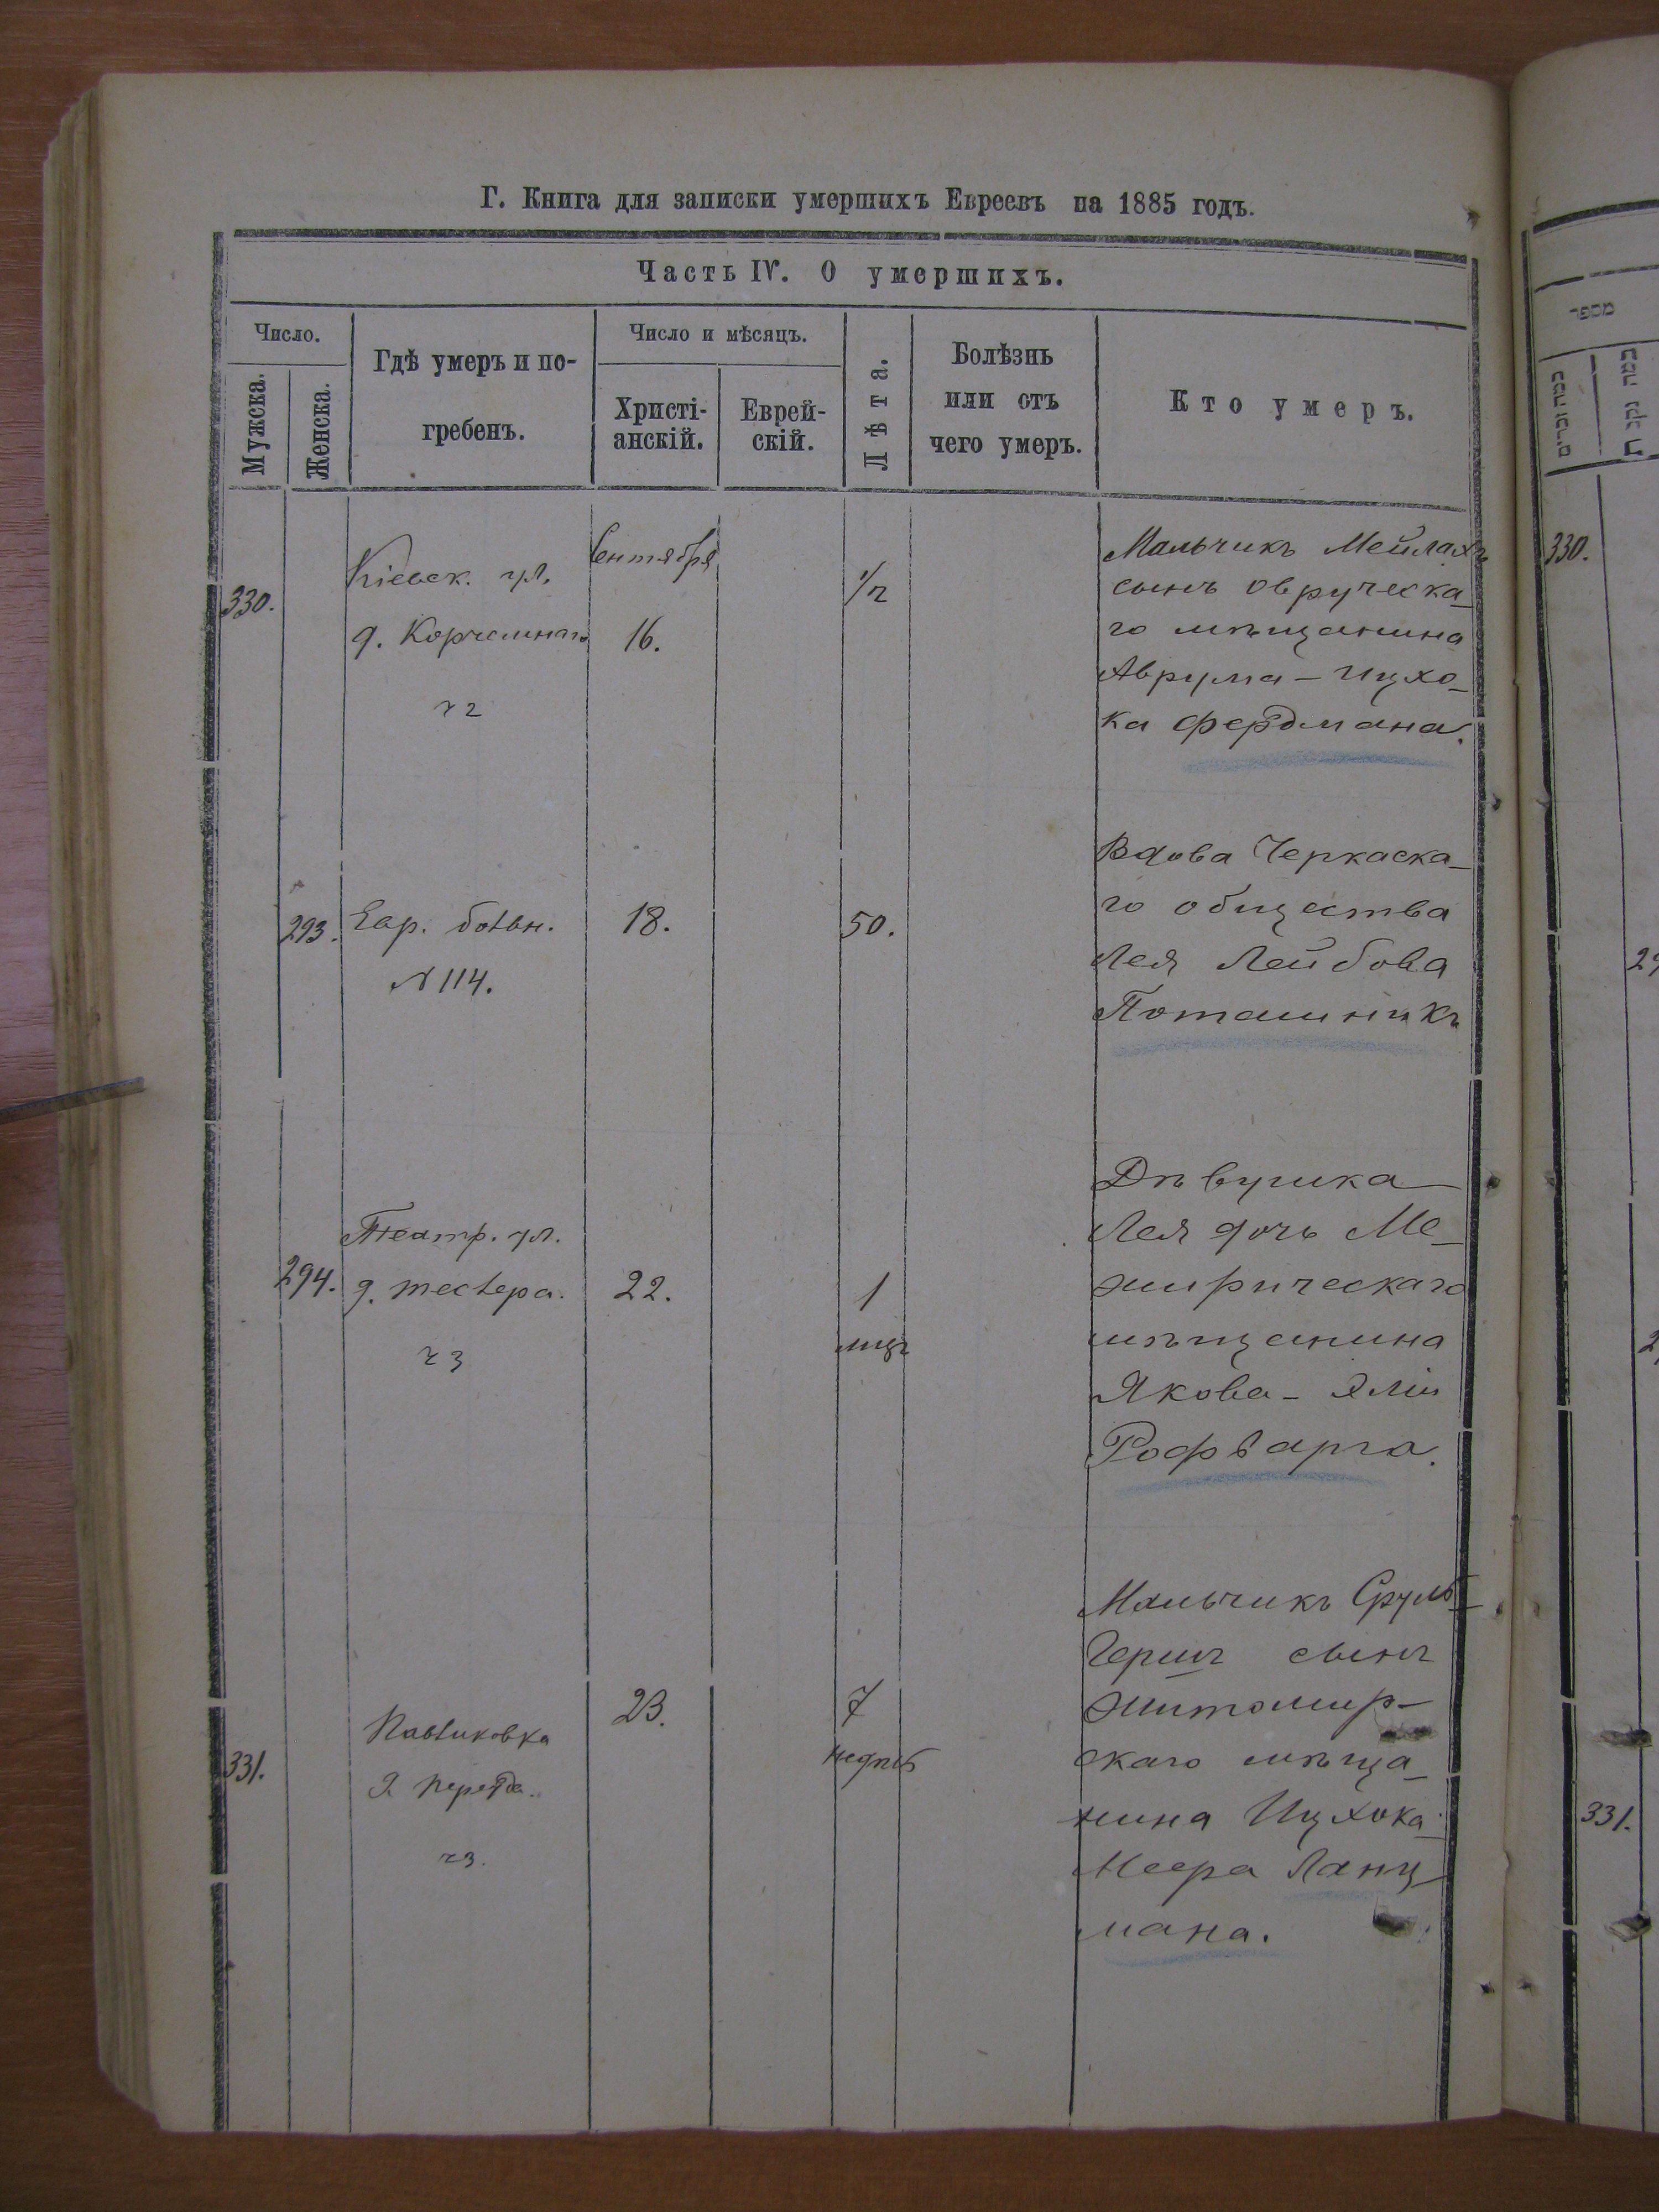 Г. Книга для записки умершихъ Евреевъ на 1885 годъ.
Часть IV. О умершихъ.
Число.
Мужска.
Женска.
Гдѣ умеръ и по-
гребенъ.
Число и мѣсяцъ.
Христі-
анскій.
Еврей-
скій.
Лѣта.
Болѣзнь
или отъ
чего умеръ.
Кто умеръ.
330.
Кіевск. ул.
д.
ч 2
Сентября
16.
1/2
Мальчикъ Мейлахъ
сынъ овручска-
го мѣщанина
Аврума-Ицхо-
ка Фердмана.
293.
Евр. больн.
N 114.
18.
50.
Вдова Черкаска-
го общества
Лея Лейбова
Поташникъ
294.
Театр. ул.
д. Тестера.
ч 3
22.
1
мцъ
Дѣвушка
Лея дочь Ме-
жирическаго
мѣщанина
Якова-Эли
Рофварга.
331.
Павликовка
ч 3.
23.
7
недѣль
Мальчикъ Сруль-
Гершъ сынъ
Житомир-
скаго мѣща-
нина Ицхока-
Меера Ланц-
мана.
330.
331.